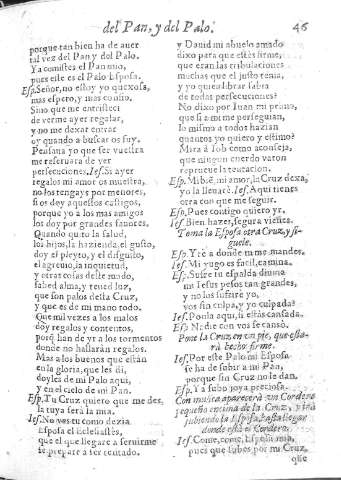 del Pan, y del Palo.
46
porque tan bien ha de auer
tal vez del Pan y del Palo.
Ya comistes el Pan mio,
pues este es el Palo Esposa.
Esp. Señor, no estoy yo quexosa,
mas espero, y mas confio.
Sino que me entristeci
de verme ayer regalar,
y no me dexar entrar
oy quando a buscaros fuy.
Pensaua yo que ser vuestra
me reseruara de ver
persecuciones. Ies. Si ayer
regalos mi amor os muestra,
no los tengays por menores,
si os doy aquestos castigos,
porque yo a los mas amigos
los doy por grandes fauores.
Quando quito la salud,
los hijos, la hazienda, el gusto,
doy el pleyto, y el disgusto,
el agrauio, la inquietud,
y otras cosas deste modo,
sabed alma, y tened luz,
que son palos desta Cruz,
y que es de mi mano todo.
Que mil vezes a los malos
doy regalos y contentos,
porq̃ han de yr a los tormentos
donde no hallarán regalos.
Mas a los buenos que están
en la gloria, que les di,
doyles de mi Palo aqui,
y en el cielo de mi Pan.
Esp. Tu Cruz quiero que me des,
la tuya será la mia.
Ies. No ves tu como dezia
Esposa el Eclesiastés,
que el que llegare a seruirme
se prepare a ser tentado.
y Dauid mi abuelo amado
dixo para que estès firme,
que eran las tribulaciones
muchas que el justo tenia,
y yo quiero librar
de todas persecuciones?
No dixo por Iuan mi pluma,
que si a mi me perseguian,
lo mismo a todos harian
quantos yo quiero y estimo?
Mira a Iob como aconseja,
que ningun cuerdo varon
reprueue la tentacion.
Esp. Mi bié, mi amor, la Cruz dexa,
yo la lleuarè. Ies. Aqui tienes
otra con que me seguir.
Esp. Pues contigo quiero yr.
Ies. Bien hazes, segura vienes.
Toma la Esposa otra Cruz, y si-
guele.
Esp. Yrè a donde mi me mandes.
Ies. Mi yugo es facil, camina.
Esp. Sufre tu espalda diuina
mi Iesus pesos tan grandes,
y no los sufrire yo,
vos sin culpa, y yo culpada?
Ies. Ponla aqui, si estàs cansada.
Esp. Nadie con vos se cansò.
Pone la Cruz en vn pie, que esta-
rà hecho firme.
Ies. Por este Palo mi Esposa
se ha de subir a mi Pan,
porque sin Cruz no le dan.
Esp. Y a subo joya preciosa.
Con musica aparecerà vn Cordero
pequeño encima de la Cruz, y irà
subiendo la Esposa hasta llegar
donde està el Cordero.
Ies. Come, come, Esposa mia,
pues que subes por mi Cruz,
que